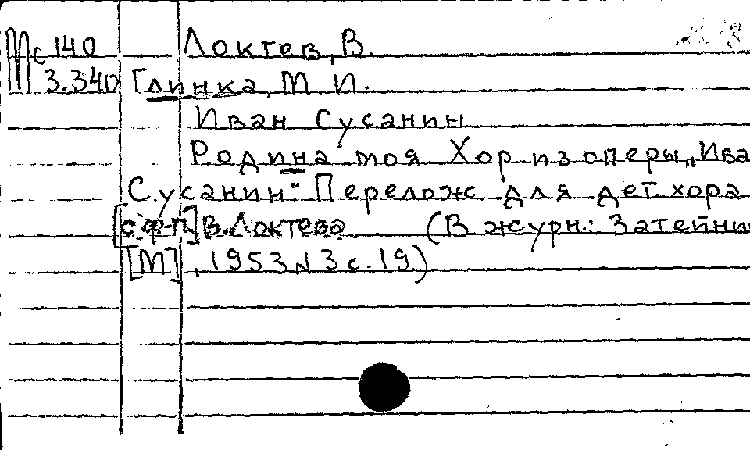 Мс 140 Локтев, В.
3.340 Глинка, М. И.
Иван Сусанин
Родина моя Хор из оперы „Ива
Сусанин" Перелож для дет хора
[с ф-п] В. Локтева (В журн.: Затейни
[М], 1953 №3 с. 19)